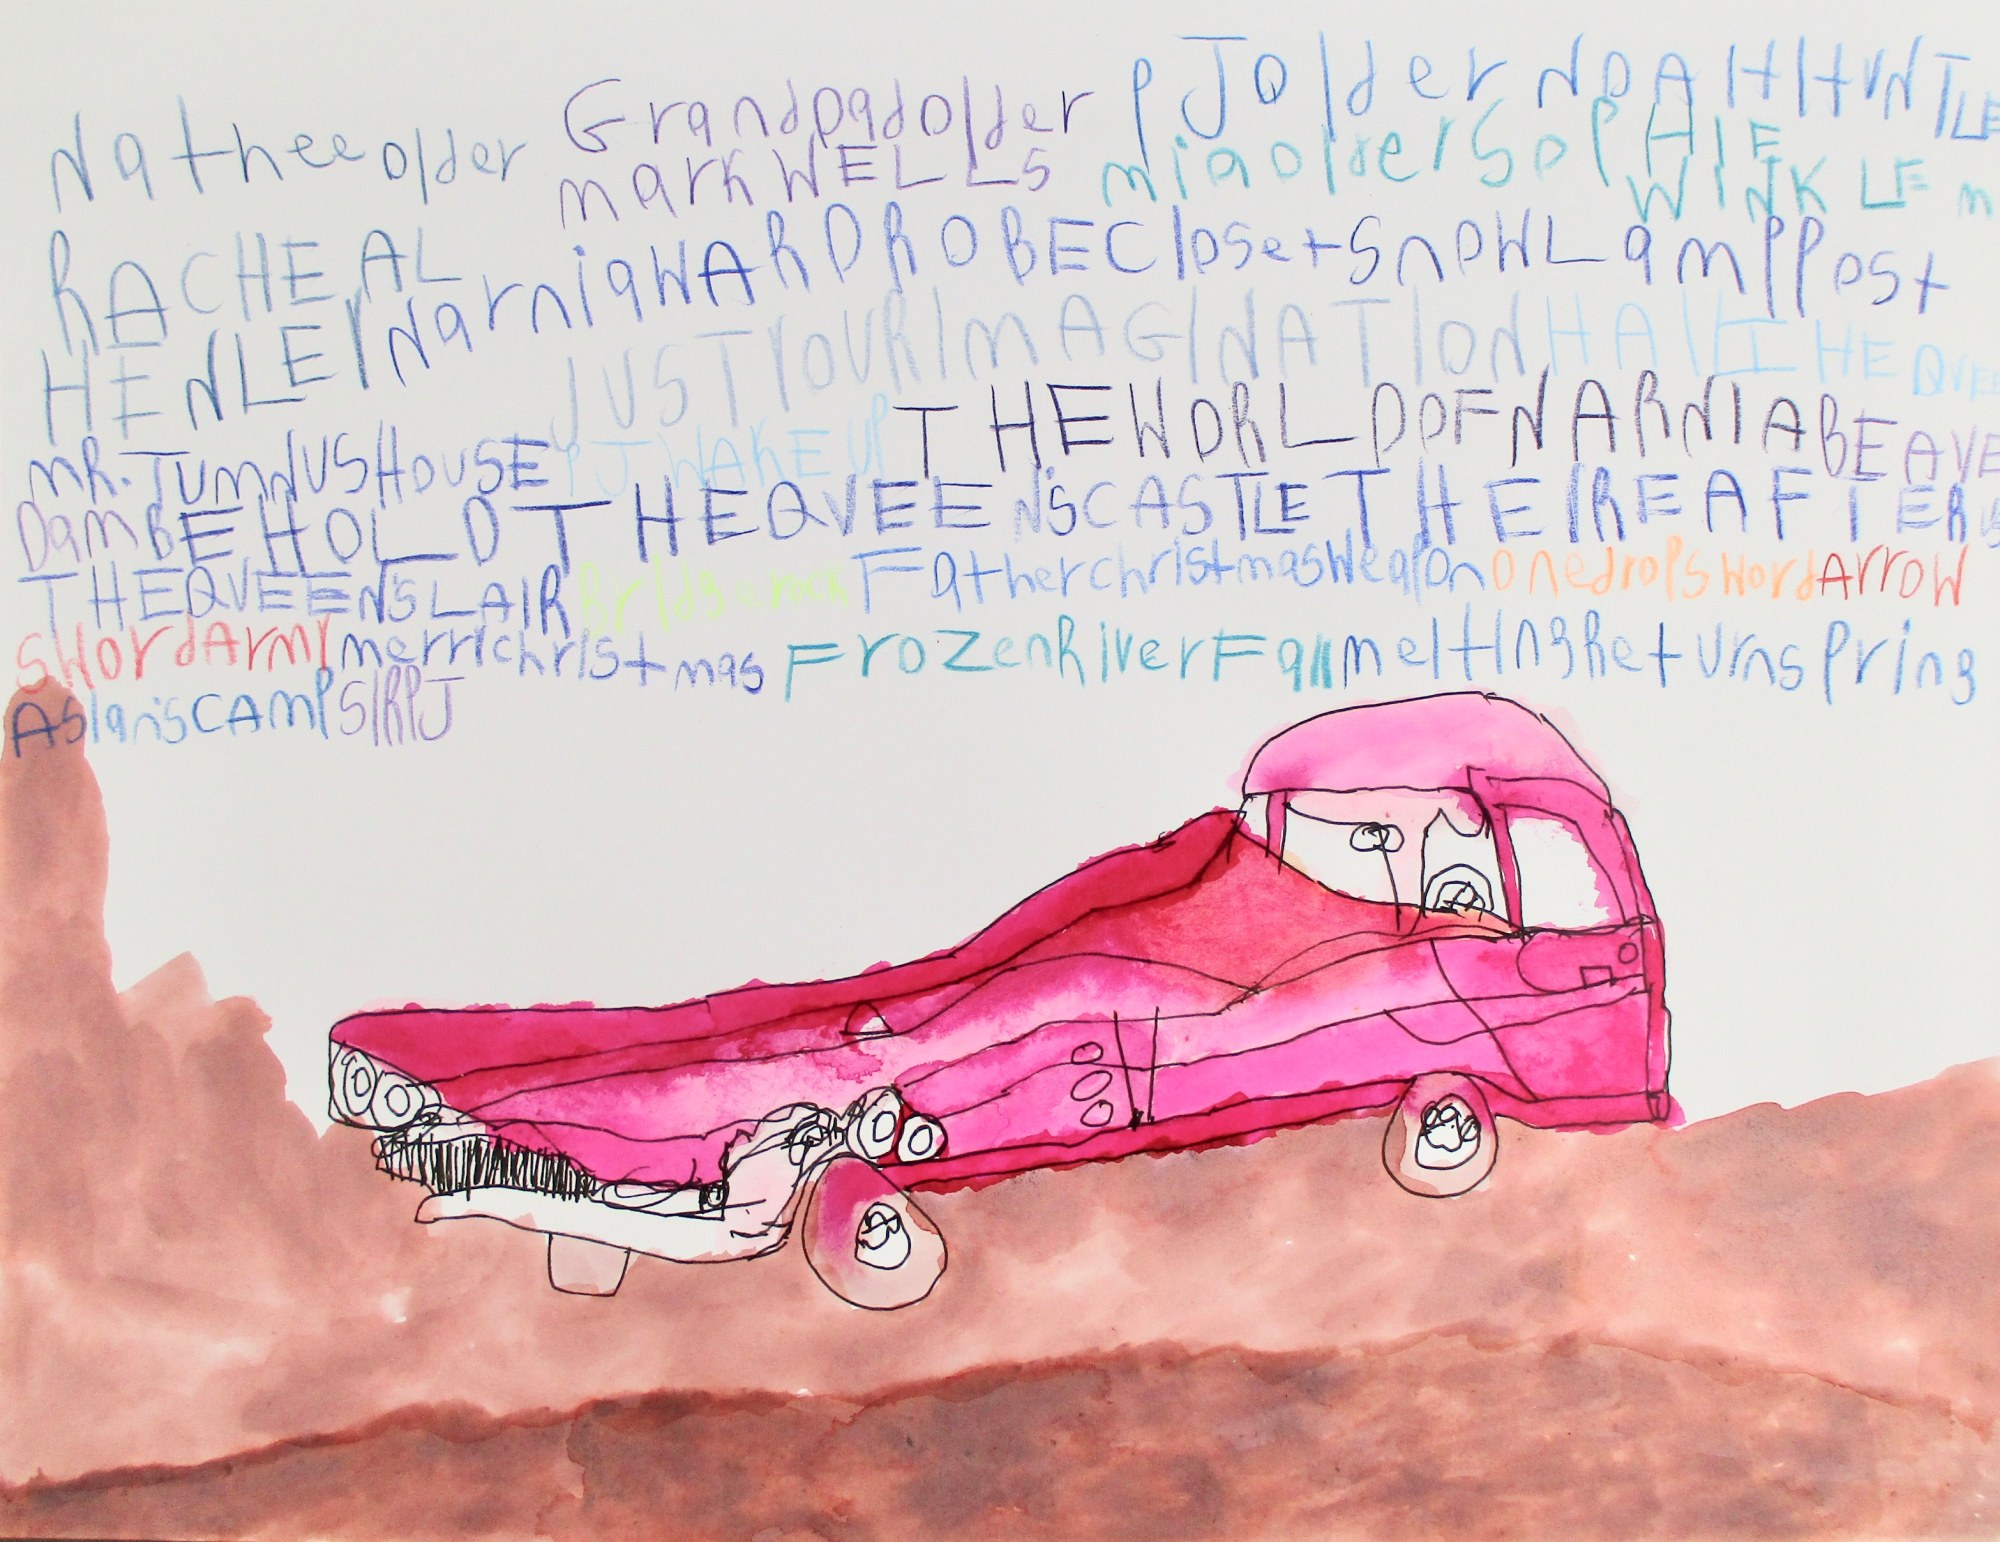 Natheeolder Grandpadolder PJOlder NOAHHVNTLE
markWELLS miaolderSOPAIE WINKLE m
RACHEAL HENLEY NarniaWARDROBEClosetSnowLamppost
JUSTYOURIMAGINATIONHAILTHEQVEE
MR.TUMNUSHOUSE PJWAKEUP THEWORLDOFNARNIABEAVE
DamBEHOLDTHEQVEEN'SCASTLETHEIREAFTERUS
THEQVEEN'SLAIRBridgerockFatherchristmasWeaponOnedropSwordArrow
SWordArmymerrychristmasFrozenRiverFallmeltingReturnspring
Aslan'sCAMPSIRPJ